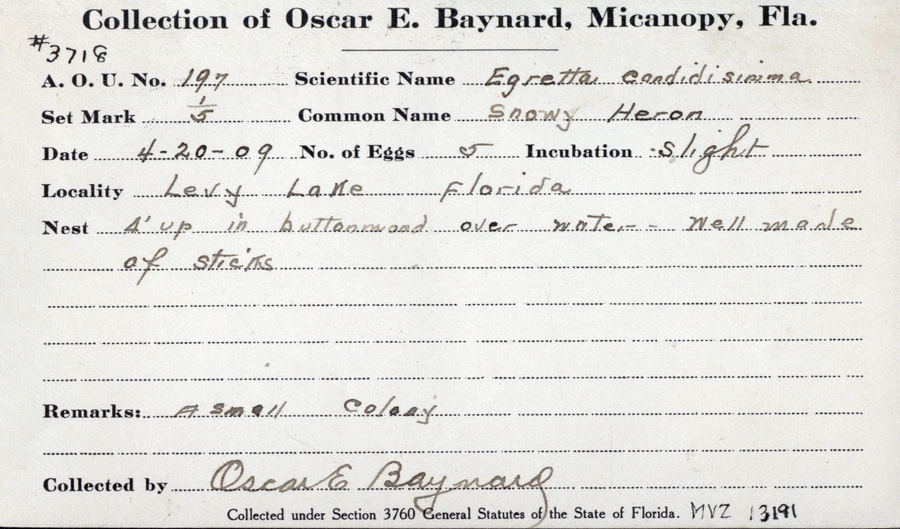 Collection of Oscar E. Baynard, Micanopy, Fla.
#3718
A. O. U. No. 197 Scientific Name Egretta candidisimma
Set Mark 1/5 Common Name Snowy Heron
Date 4-20-09 No. of Eggs 5 Incubation slight
Locality Levy Lake Florida
Nest 4' up in buttonwood over water - well made
of sticks
Remarks: A small colony
Collected by Oscar E Baynard
Collected under Section 3760 General Statutes of the State of Florida. MVZ 13191